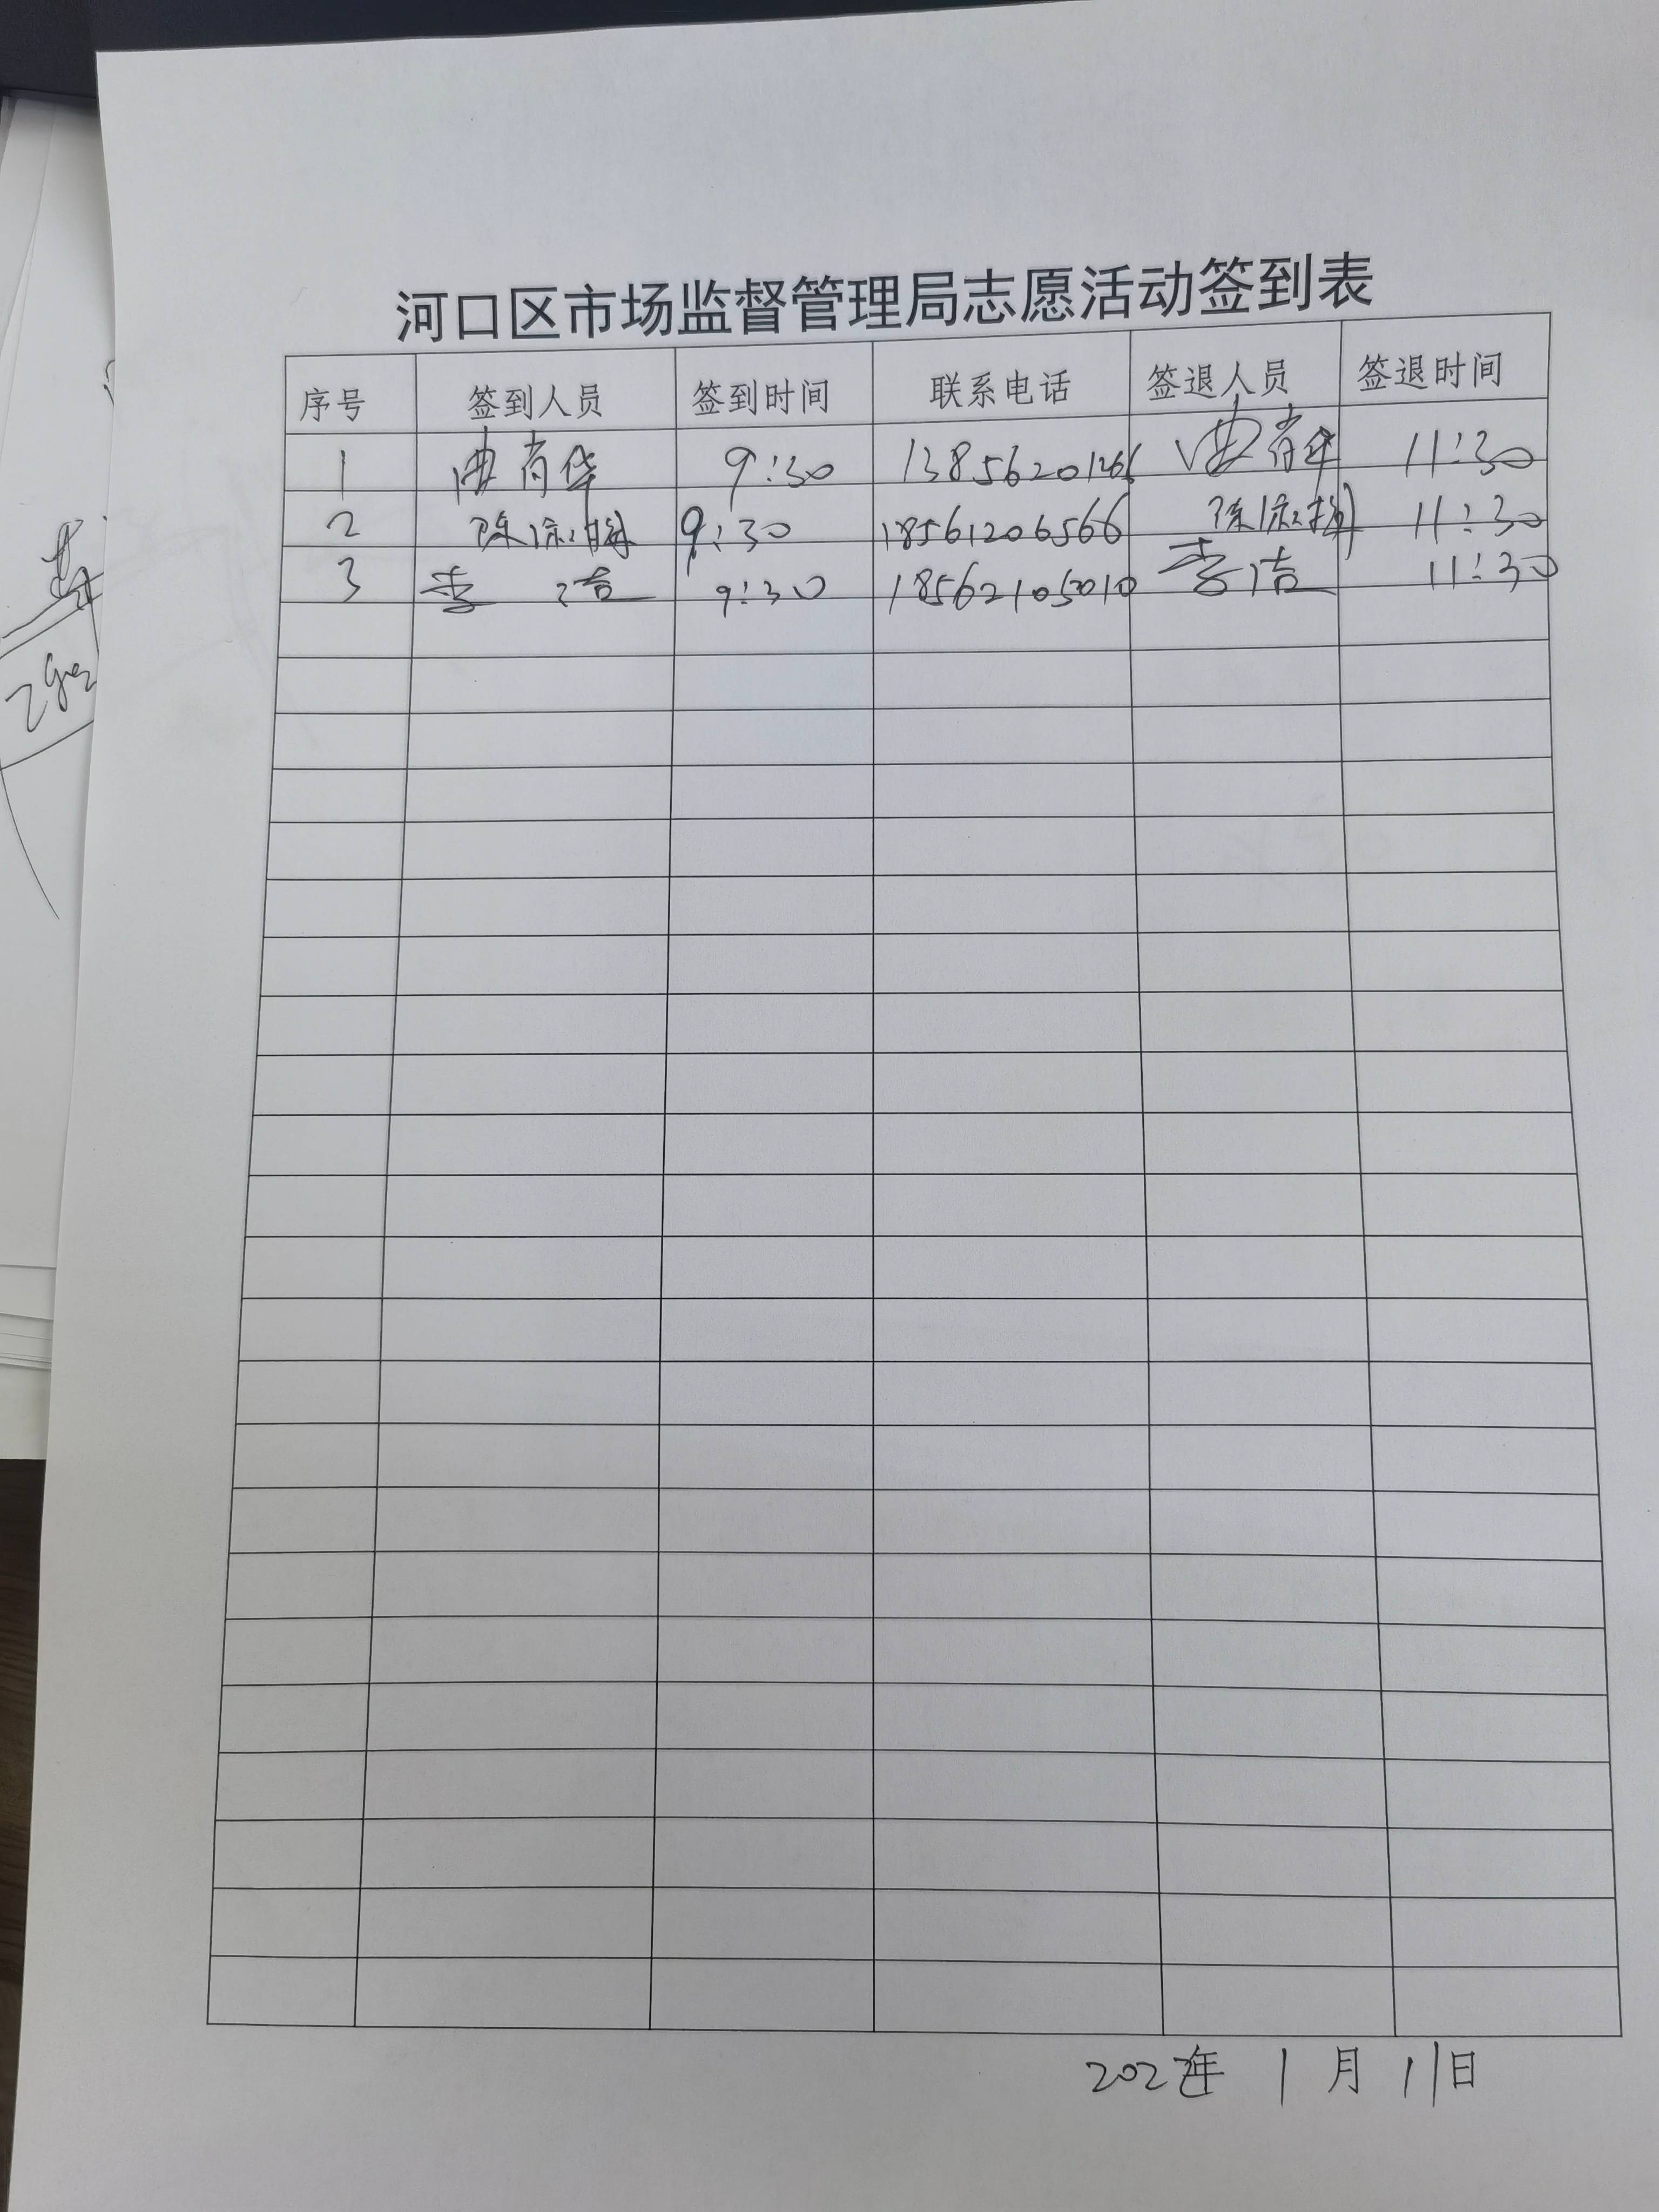 河口区市场监督管理局志愿活动签到表
序号 签到人员 签到时间 联系电话 签退人员 签退时间
1 曲肖华 9:30 曲肖华 11:30
2 陈 9:30 18561206566 陈 11:30
3 李洁 9:30 18562105010 李洁 11:30
2022年 1月 11日